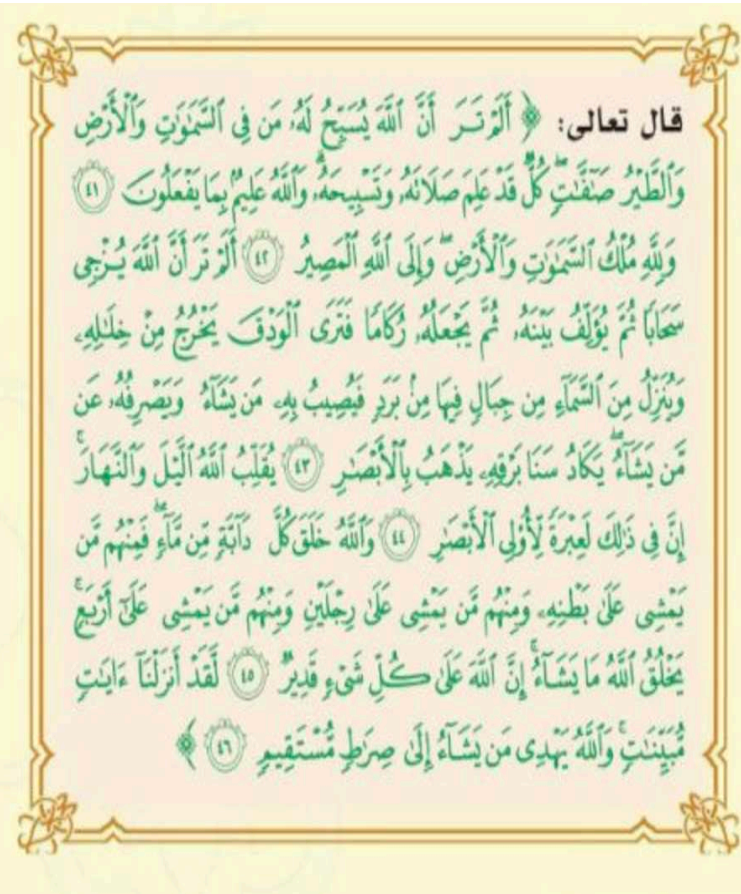 قال تعالى: ﴿ أَلَمْ تَرَ أَنَّ ٱللَّهَ يُسَبِّحُ لَهُۥ مَن فِى ٱلسَّمَٰوَٰتِ وَٱلْأَرْضِ
وَٱلطَّيْرُ صَٰٓفَّٰتٍۖ كُلٌّ قَدْ عَلِمَ صَلَانَهُۥ وَتَسْبِيحَهُۥۗ وَٱللَّهُ عَلِيمٌۢ بِمَا يَفْعَلُونَ ﴿٤١﴾
وَلِلَّهِ مُلْكُ ٱلسَّمَٰوَٰتِ وَٱلْأَرْضِۖ وَإِلَى ٱللَّهِ ٱلْمَصِيرُ ﴿٤٢﴾ أَلَمْ تَرَ أَنَّ ٱللَّهَ يُزْجِى
سَحَابًا ثُمَّ يُؤَلِّفُ بَيْنَهُۥ ثُمَّ يَجْعَلُهُۥ رُكَامًا فَتَرَى ٱلْوَدْقَ يَخْرُجُ مِنْ خِلَٰلِهِۦ
وَيُنَزِّلُ مِنَ ٱلسَّمَآءِ مِن جِبَالٍ فِيهَا مِنۢ بَرَدٍ فَيُصِيبُ بِهِۦ مَن يَشَآءُ وَيَصْرِفُهُۥ عَن
مَّن يَشَآءُۖ يَكَادُ سَنَا بَرْقِهِۦ يَذْهَبُ بِٱلْأَبْصَٰرِ ﴿٤٣﴾ يُقَلِّبُ ٱللَّهُ ٱلَّيْلَ وَٱلنَّهَارَۚ
إِنَّ فِى ذَٰلِكَ لَعِبْرَةً لِّأُو۟لِى ٱلْأَبْصَٰرِ ﴿٤٤﴾ وَٱللَّهُ خَلَقَ كُلَّ دَآبَّةٍ مِّن مَّآءٍۖ فَمِنْهُم مَّن
يَمْشِى عَلَىٰ بَطْنِهِۦ وَمِنْهُم مَّن يَمْشِى عَلَىٰ رِجْلَيْنِ وَمِنْهُم مَّن يَمْشِى عَلَىٰٓ أَرْبَعٍۚ
يَخْلُقُ ٱللَّهُ مَا يَشَآءُۚ إِنَّ ٱللَّهَ عَلَىٰ كُلِّ شَىْءٍ قَدِيرٌ ﴿٤٥﴾ لَّقَدْ أَنزَلْنَآ ءَايَٰتٍ
مُّبَيِّنَٰتٍۚ وَٱللَّهُ يَهْدِى مَن يَشَآءُ إِلَىٰ صِرَٰطٍ مُّسْتَقِيمٍ ﴿٤٦﴾ ﴾